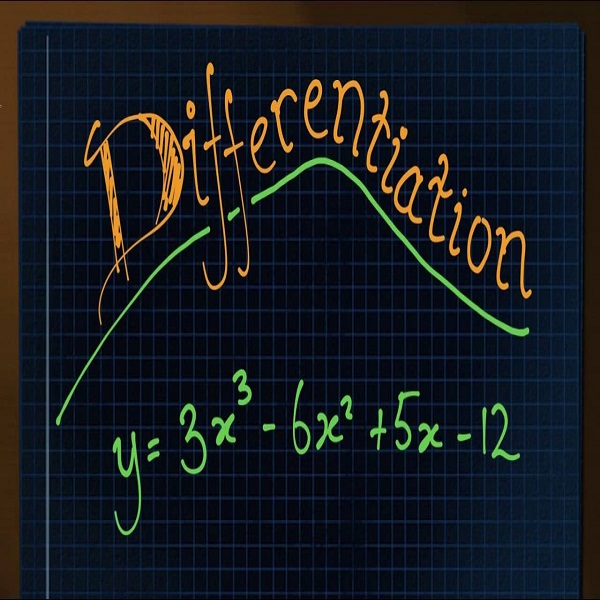 Differentiation
y = 3x³ - 6x² + 5x - 12